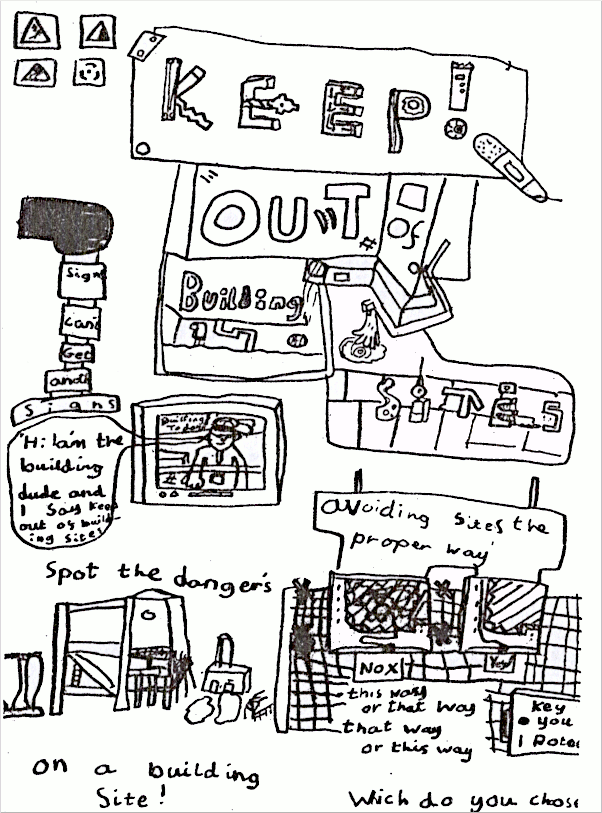 KEEP!
OUT
Of
Building
SITES
Sign
Get
Signs
Building
Today
"Hi I am the
building
dude and
I Say keep
out of build-
ing sites"
avoiding sites the
proper way
Spot the danger's
on a building
Site!
this way
or that way
that way
or this way
key
you
Which do you chose